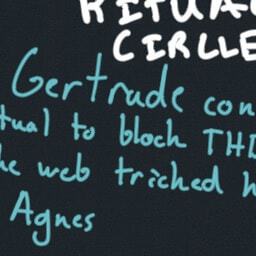 RITUA
CIRCLE
Gertrude con
tual to block THI
he web tricked h
Agnes